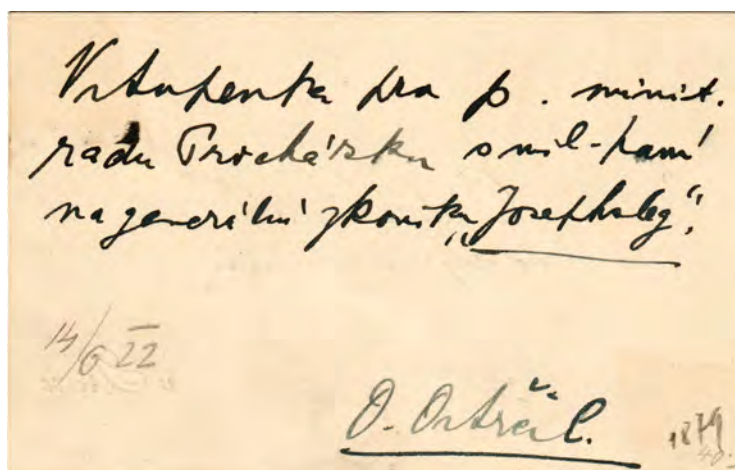 Vstupenka pro p. minist.
radu Procházku s mil. paní
na generální zkoušku „Josephsleg.“
14/6 22
O. Ostrčil.
1879
40.-